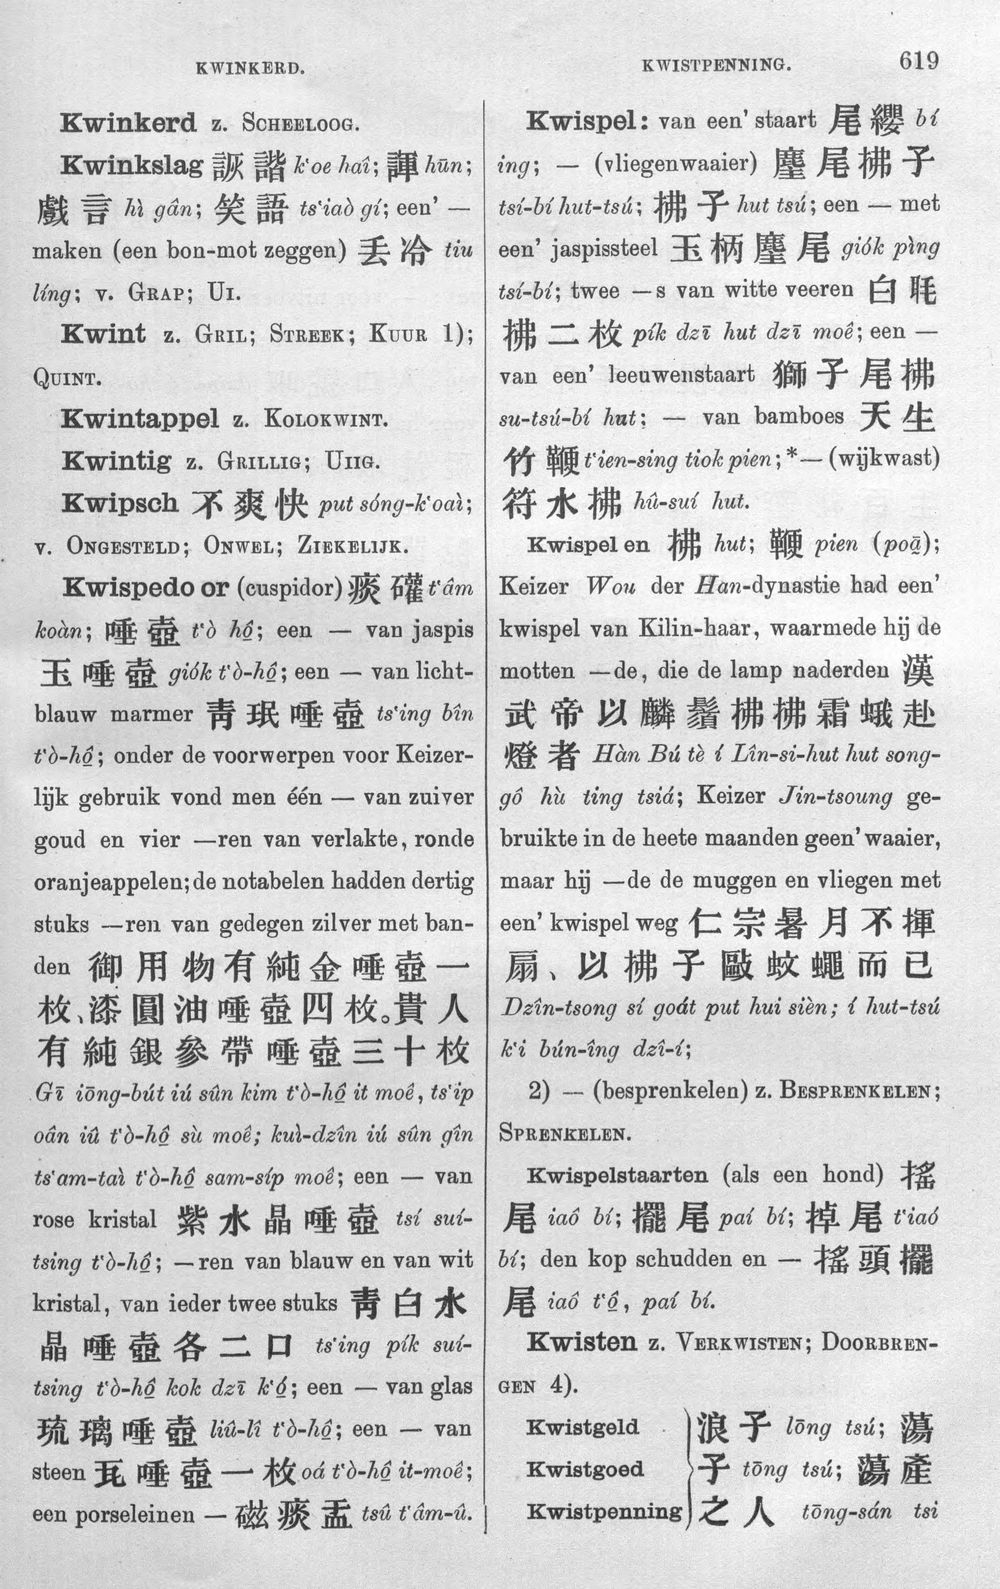 KWINKERD.
KWISTPENNING.
619
Kwinkerd z. SCHEELOOG.
Kwinkslag 詼 諧 k‘oe haî; 諢 hūn;
戲 言 hì gân; 笑 語 ts‘iaò gí; een’ —
maken (een bon-mot zeggen) 丢 冷 tiu
líng; v. GRAP; UI.
Kwint z. GRIL; STREEK; KUUR 1);
QUINT.
Kwintappel z. KOLOKWINT.
Kwintig z. GRILLIG; UIIG.
Kwipsch 不 爽 快 put sóng-k‘oaì;
v. ONGESTELD; ONWEL; ZIEKELIJK.
Kwispedo or (cuspidor) 痰 礶 t‘âm
koàn; 唾 壺 t‘ò hô͘; een — van jaspis
玉 唾 壺 giók t‘ò-hô͘; een — van licht-
blauw marmer 靑 珉 唾 壺 ts‘ing bîn
t‘ò-hô͘; onder de voorwerpen voor Keizer-
lijk gebruik vond men één — van zuiver
goud en vier —ren van verlakte, ronde
oranjeappelen; de notabelen hadden dertig
stuks —ren van gedegen zilver met ban-
den 御 用 物 有 純 金 唾 壺 一
枚、漆 圓 油 唾 壺 四 枚。貴 人
有 純 銀 參 帶 唾 壺 三 十 枚
Gī iōng-bút iú sûn kim t‘ò-hô͘ it moê, ts‘ip
oân iû t‘ò-hô͘ sù moê; kuì-dzîn iú sûn gîn
ts‘am-taì t‘ò-hô͘ sam-síp moê; een — van
rose kristal 紫 水 晶 唾 壺 tsí suí-
tsing t‘ò-hô͘; —ren van blauw en van wit
kristal, van ieder twee stuks 靑 白 水
晶 唾 壺 各 二 口 ts‘ing pík suí-
tsing t‘ò-hô͘ kok dzī k‘ó͘; een — van glas
琉 璃 唾 壺 liû-lî t‘ò-hô͘; een — van
steen 瓦 唾 壺 一 枚 oá t‘ò-hô͘ it-moê;
een porseleinen — 磁 痰 盂 tsû t‘âm-û.
Kwispel: van een’ staart 尾 纓 bí
ing; — (vliegenwaaier) 麈 尾 拂 子
tsí-bí hut-tsú; 拂 子 hut tsú; een — met
een’ jaspissteel 玉 柄 麈 尾 giók pìng
tsí-bí; twee —s van witte veeren 白 毦
拂 二 枚 pík dzī hut dzī moê; een —
van een’ leeuwenstaart 獅 子 尾 拂
su-tsú-bí hut; — van bamboes 天 生
竹 鞭 t‘ien-sing tiok pien; *— (wijkwast)
符 水 拂 hû-suí hut.
Kwispel en 拂 hut; 鞭 pien (poaⁿ);
Keizer Wou der Han-dynastie had een’
kwispel van Kilin-haar, waarmede hij de
motten —de, die de lamp naderden 漢
武 帝 以 麟 鬚 拂 拂 霜 蛾 赴
燈 者 Hàn Bú tè í Lîn-si-hut hut song-
gô hù ting tsiá; Keizer Jin-tsoung ge-
bruikte in de heete maanden geen’ waaier,
maar hij —de de muggen en vliegen met
een’ kwispel weg 仁 宗 暑 月 不 揮
扇、以 拂 子 毆 蚊 蠅 而 已
Dzîn-tsong sí goát put hui sièn; í hut-tsú
k‘i bún-îng dzî-í;
2) — (besprenkelen) z. BESPRENKELEN;
SPRENKELEN.
Kwispelstaarten (als een hond) 搖
尾 iaô bí; 擺 尾 paí bí; 掉 尾 t‘iaó
bí; den kop schudden en — 搖 頭 擺
尾 iaô t‘ô͘, paí bí.
Kwisten z. VERKWISTEN; DOORBREN-
GEN 4).
Kwistgeld 浪 子 lōng tsú; 蕩
Kwistgoed 子 tōng tsú; 蕩 產
Kwistpenning 之 人 tōng-sán tsi